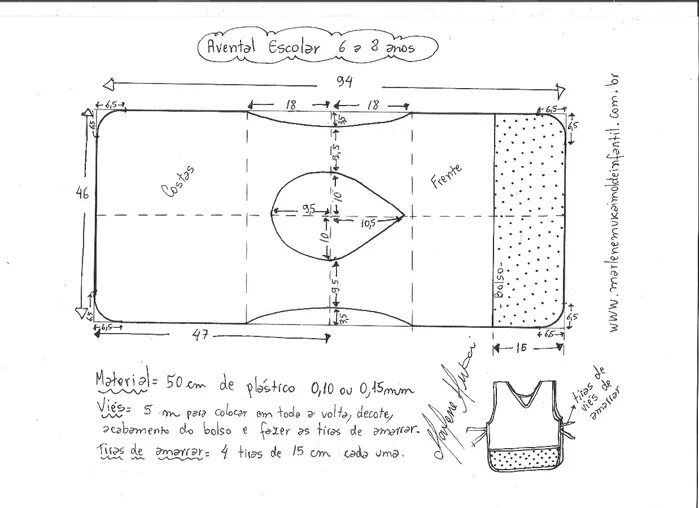 Avental Escolar 6 a 8 anos
94
6,5
18
18
6,5
6,5
3,5
6,5
9,5
46
Costas
Frente
10
9,5
10,5
10
Bolso
9,5
6,5
3,5
6,5
6,5
6,5
47
15
www.marlenemukaimoldeinfantil.com.br
Material = 50 cm de plástico 0,10 ou 0,15mm
Viés = 5 m para colocar em toda a volta, decote,
acabamento do bolso e fazer as tiras de amarrar.
Tiras de amarrar = 4 tiras de 15 cm cada uma.
Marlene Mukai
tiras de
viés de
amarrar